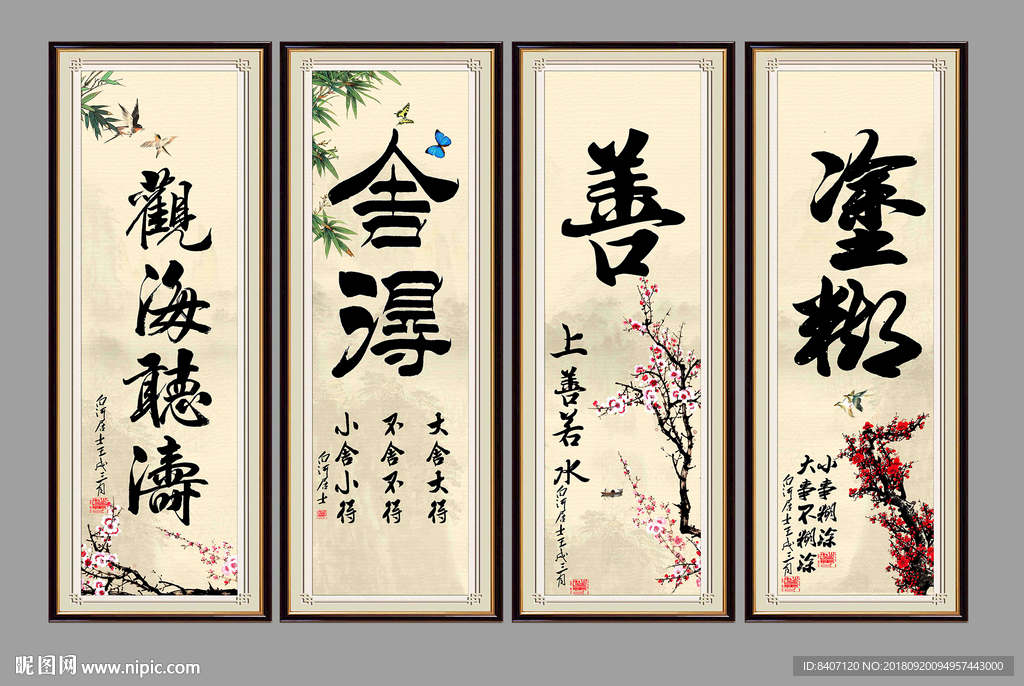 觀海聽濤
白河居士壬戌三月
舍得
大舍大得
不舍不得
小舍小得
白河居士
善
上善若水
白河居士壬戌三月
塗糊
小事糊涂
大事不糊涂
白河居士壬戌三月
昵图网 www.nipic.com
ID:8407120 NO:20180920094957443000